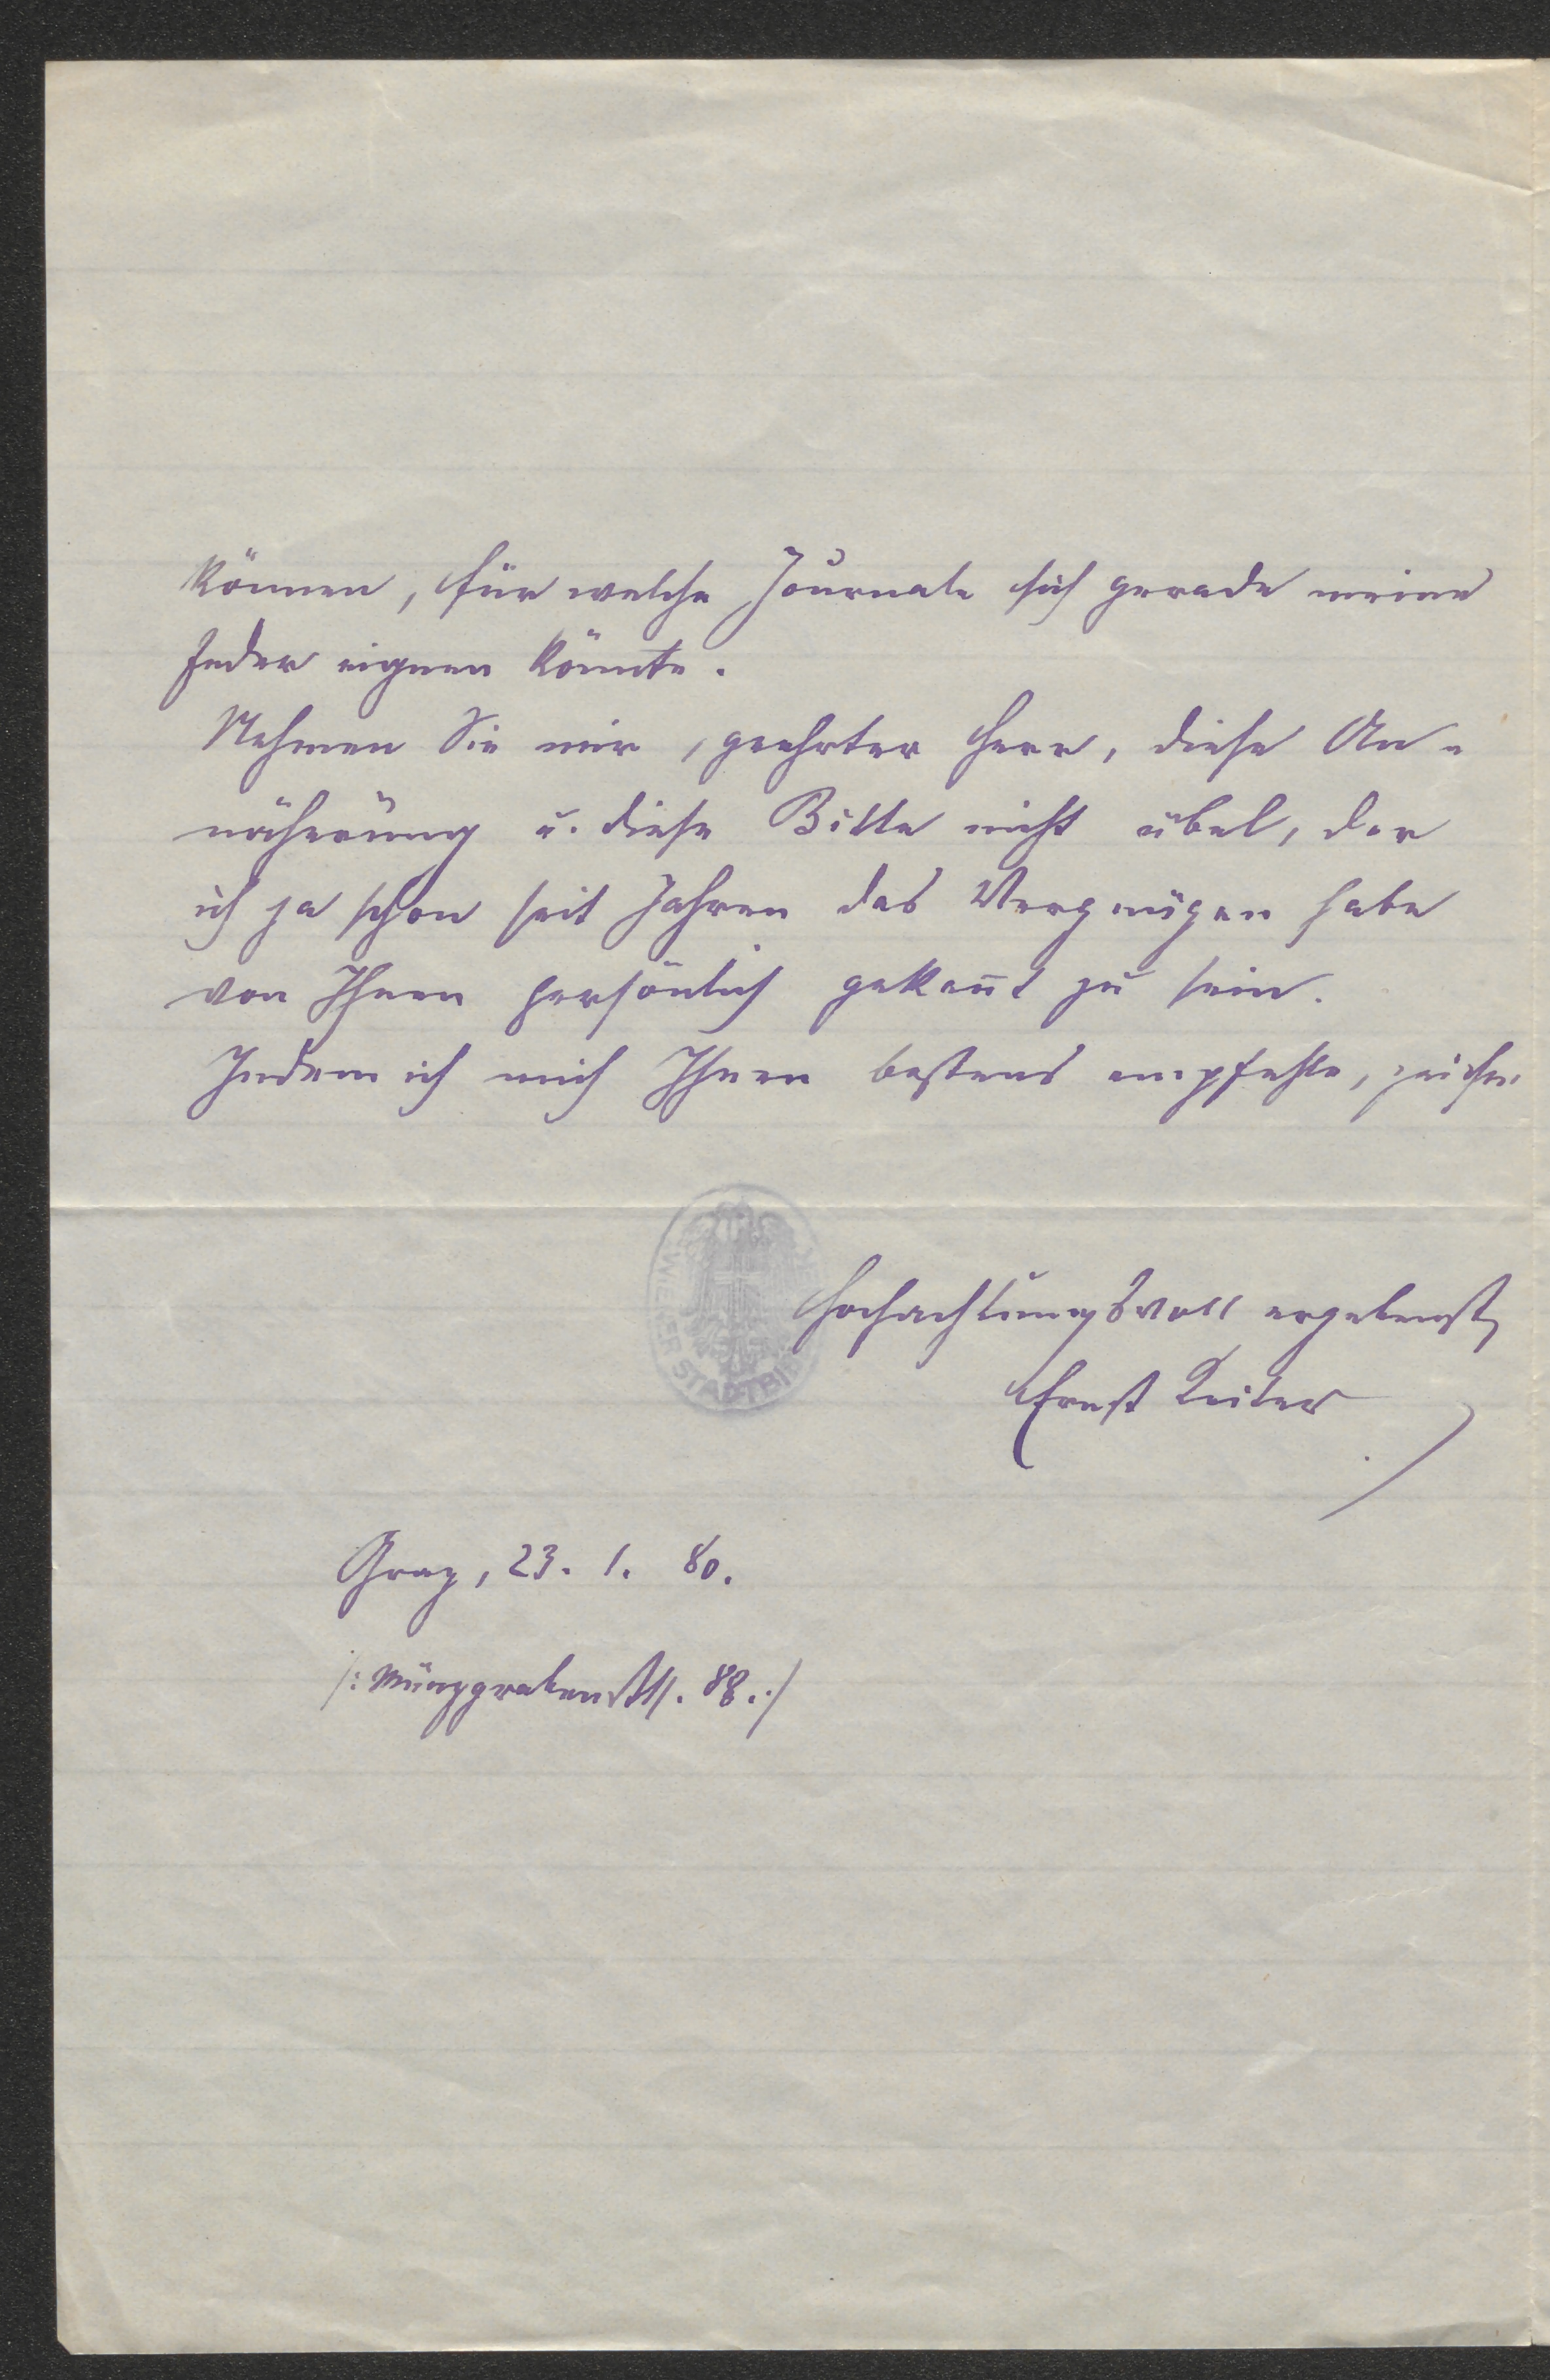 können, für welche Journale sich gerade meine
Feder eignen könnte.
Nehmen Sie mir, geehrter Herr, diese An-
näherung u. diese Bitte nicht übel, der
ich ja schon seit Jahren das Vergnügen habe
von Ihnen persönlich gekannt zu sein.
Indem ich mich Ihnen bestens empfehle, zeichne
Hochachtungsvoll ergebenst
Ernst Reiter
Graz, 23. 1. 80.
/: Münzgrabenstr. 88. :/
WIENER STADTBI